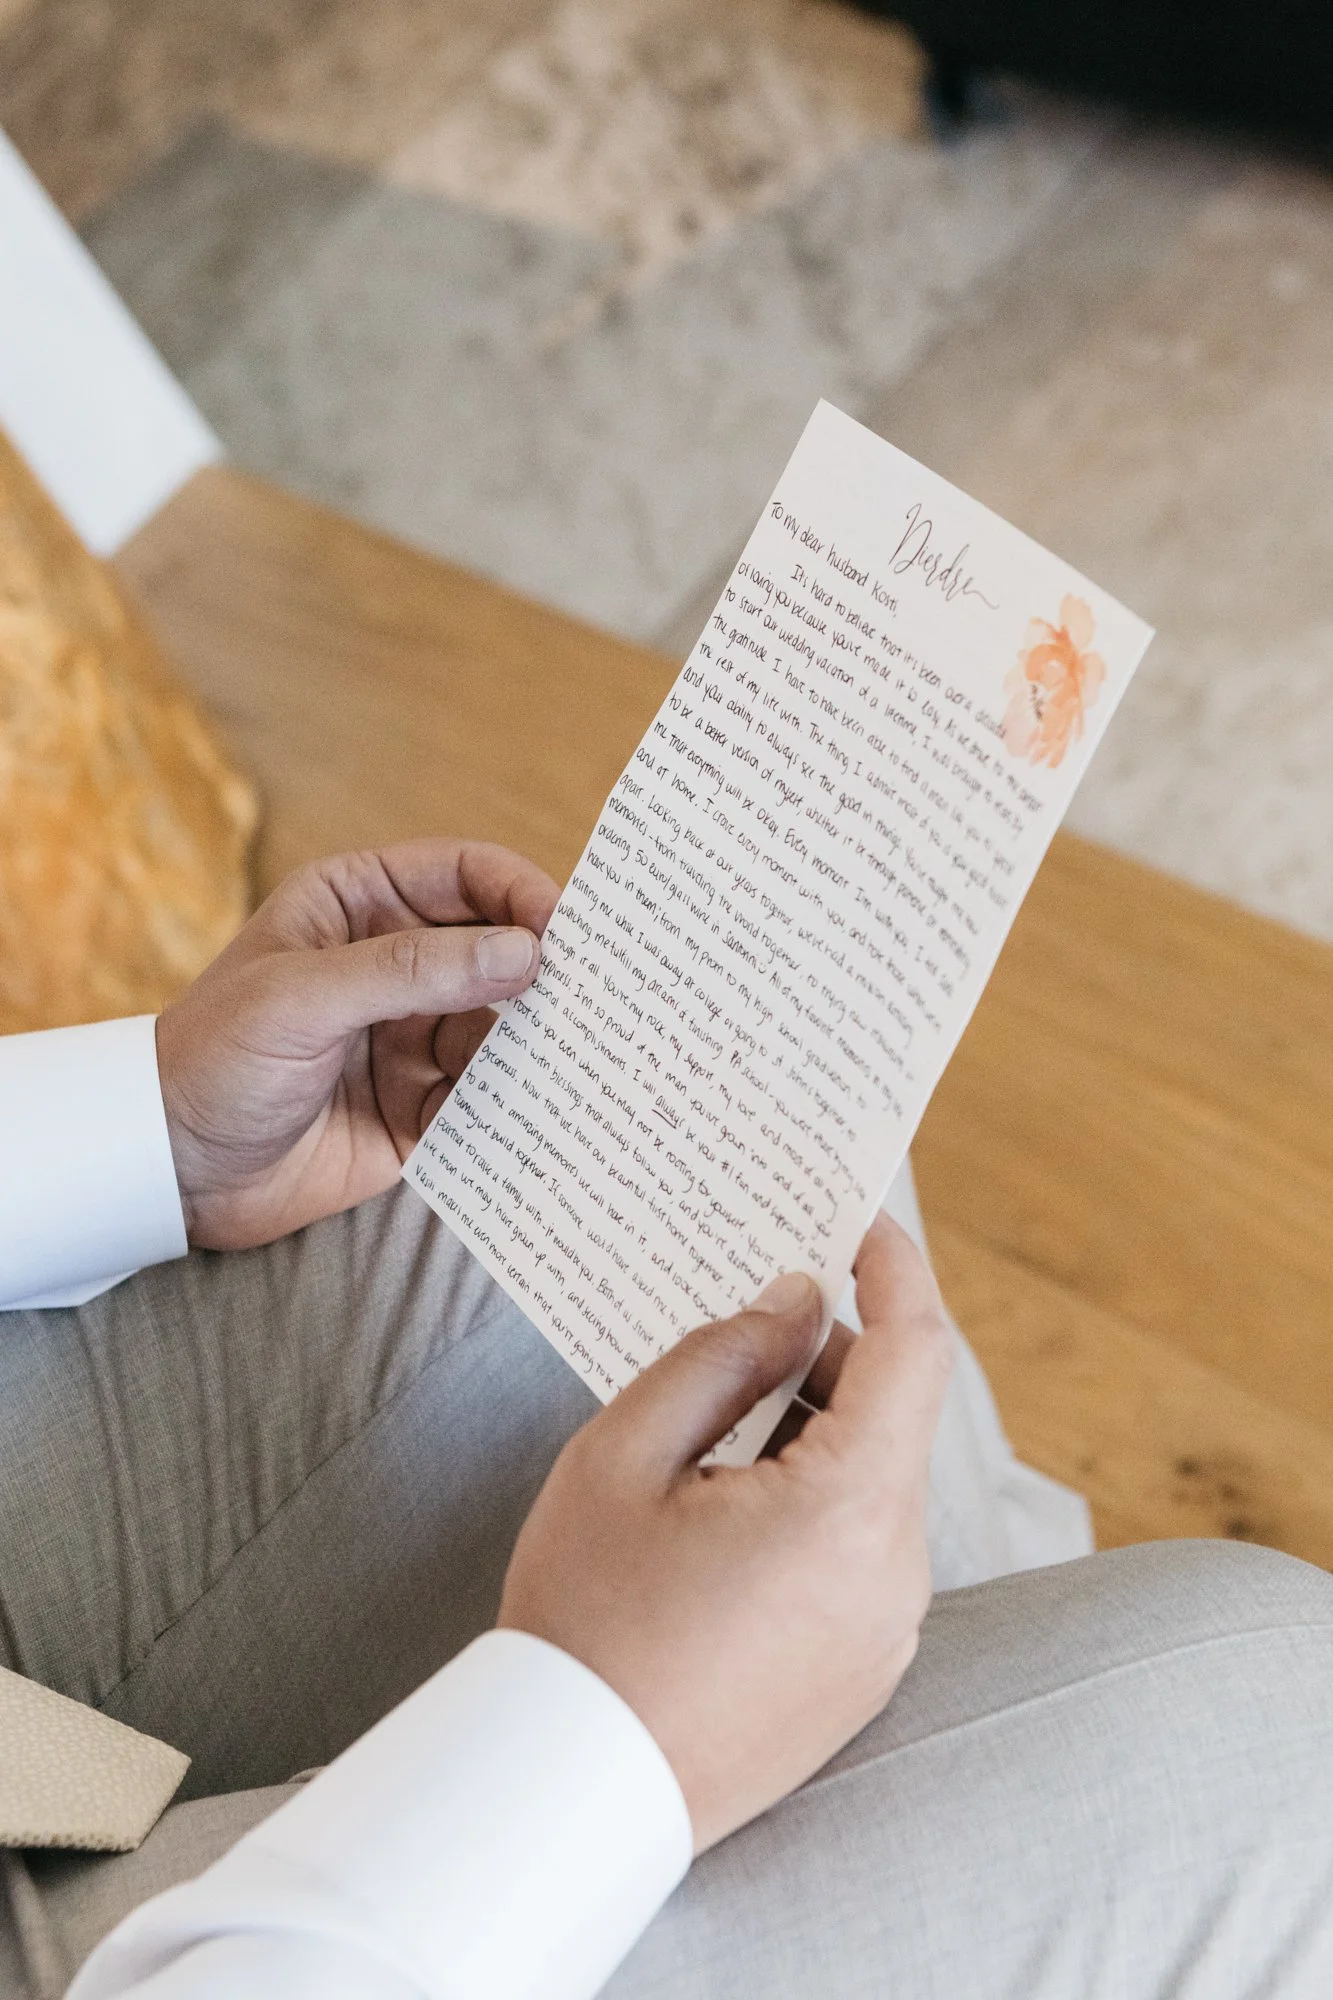 Dierdre
To my dear husband Kosti,
It's hard to believe that it's been over a decade
of loving you because you've made it so easy. As we drive to the airport
to start our wedding vacation of a lifetime, I was brought to tears by
the gratitude I have to have been able to find a man like you to spend
the rest of my life with. The thing I admire most of you is your good heart
and your ability to always see the good in things. You've taught me how
to be a better version of myself, whether it be through patience or reminding
me that everything will be okay. Every moment I'm with you, I feel safe
and at home. I crave every moment with you, and hate those when we're
apart. Looking back at our years together, we've had a million amazing
memories - from traveling the world together, to trying new
ordering 50 euro/glass wine in Santorini :) All of my favorite memories in my life
have you in them; from my prom to my high school graduation to
visiting me while I was away at college or going to St John's together to
watching me fulfill my dreams of finishing PA school - you were there by my side
through it all. You're my rock, my support, my love and most of all my
happiness. I'm so proud of the man you've grown into and of all your
personal accomplishments. I will always be your #1 fan and supporter, and
root for you even when you may not be rooting for yourself. You're a
person with blessings that always follow you, and you're destined
greatness. Now that we have our beautiful first home together, I
to all the amazing memories we will have in it, and look forward
family we build together. If someone would have asked me to
partner to raise a family with - it would be you. Both of us strive
life than we may have grown up with, and seeing how
Vasili makes me even more certain that you're going to be